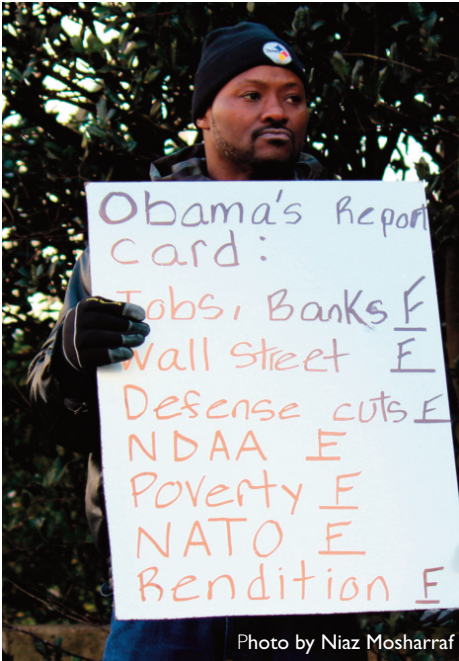 Obama's Report
Card:
Jobs, Banks F
Wall Street F
Defense cuts F
NDAA F
Poverty F
NATO F
Rendition F
Photo by Niaz Mosharraf